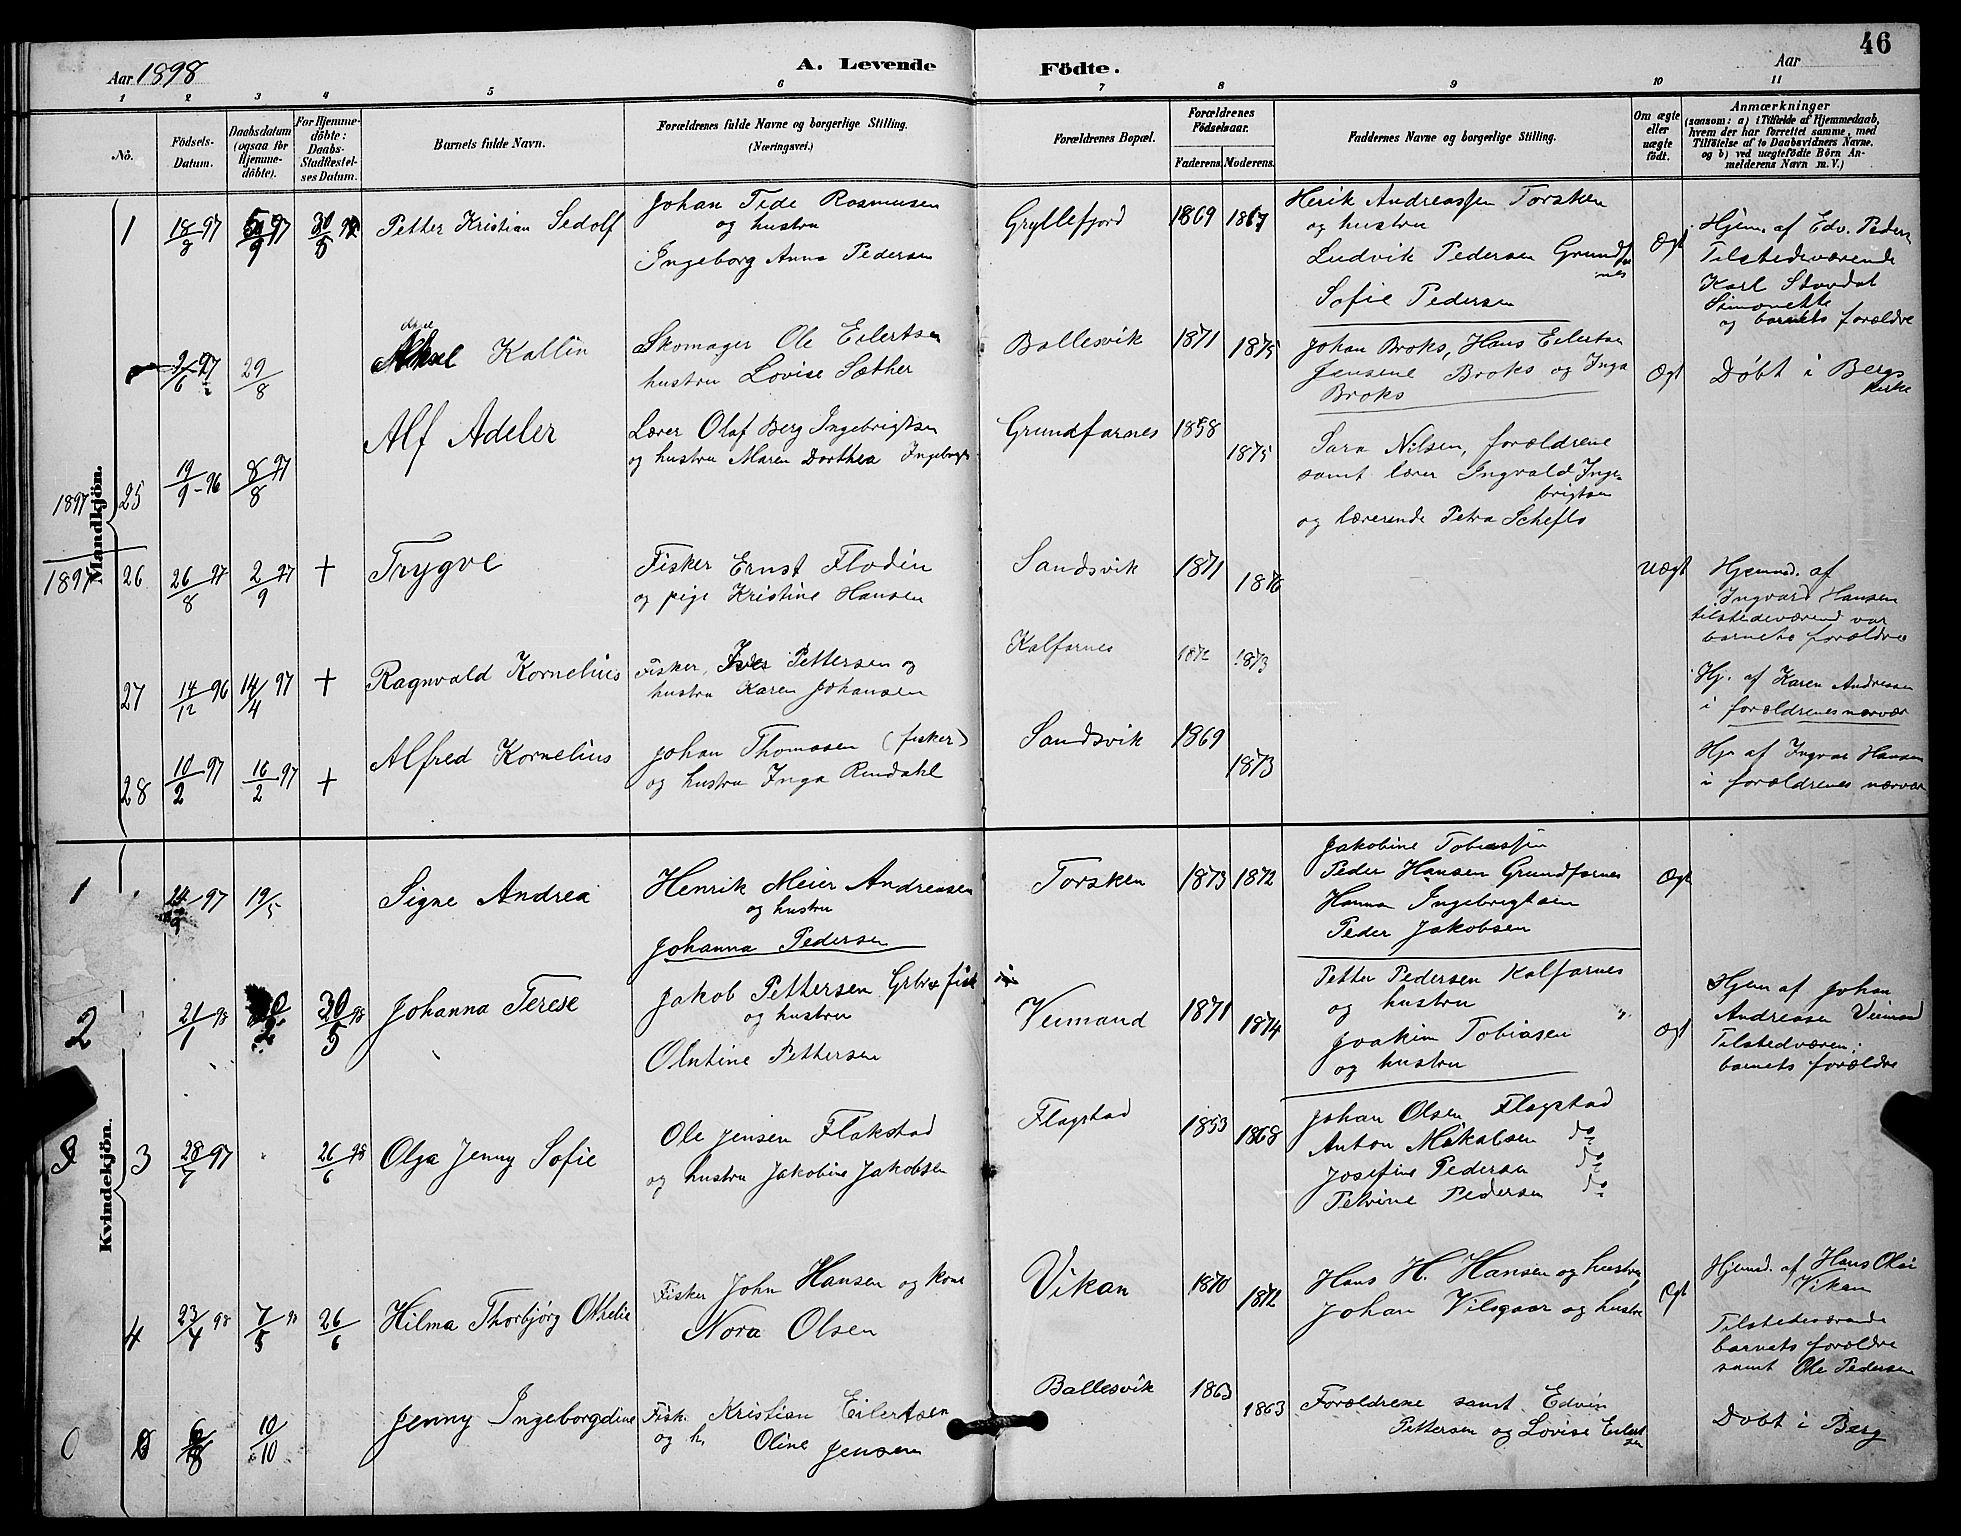 46
Aar 1898
A. Levende
Födte.
Aar
1 2 3 4 5 6 7 8 9 10 11
No.
Födsels-
Datum.
Daabsdatum
(ogsaa for
Hjemme-
döbte).
For Hjemme-
döbte:
Daabs-
Stadfæstel-
ses Datum.
Barnets fulde Navn.
Forældrenes fulde Navne og borgerlige Stilling.
(Næringsvei.)
Forældrenes Bopæl.
Forældrenes
Födselsaar.
Faderens.
Moderens.
Faddernes Navne og borgerlige Stilling.
Om ægte
eller
uægte
født.
Anmærkninger
(saasom: a) i Tilfælde af Hjemmedaab,
hvem der har forrettet samme, med
Tilföielse af to Daabsvidners Navne.
og b) ved uægtefödte Börn An-
melderens Navn m. V.)
Mandkjön.
1
18/8 97
5/9 97
30/5 98
Petter Kristian Sedolf
Johan Tide Rasmusen
og hustru
Ingeborg Anna Pedersen
Gryllefjord
1869
1867
Herik Andreassen Torsken
og hustru
Ludvik Pedersen Grundfar
nes
Sofie Pedersen
Ægt
Hjem. af Edv. Peders
Tilstedeværende
Karl Stordal
Simonette
og barnets forældre
2/6 97
29/8
Aksel
Kallin
Skomager Ole Eilertsen
hustru Lovise Sæther
Ballesvik
1871
1875
Johan Broks, Hans Eilertsen
Jensine Broks og Inga
Broks
Ægt
Døbt i Bergs
kirke
1897
25
19/9 - 96
8/8 97
Alf Adeler
Lærer Olaf Berg Ingebrigtsen
og hustru Maren Dorthea Ingebrigts
Grundfarnes
1858
1875
Sara Nilsen, forældrene
samt lærer Ingvald Inge-
brigtsen
og lærerinde Petra Schefls
1897
26
26/8 97
2/9 97
+
Trygve
Fisker Ernst Flodin
og pige Kristine Hansen
Sandsvik
1871
1876
Uægt
Hjemmed. af
Ingvard Hansen
tilstedeværend var
barnets forældre
27
14/12 96
14/4 97
+
Ragnvald Kornelius
Fisker, Pettersen og
hustru Karen Johansen
Kalfarnes
1872
1873
Hj. af Karen Andresen
i forældrenes nærvær
28
10/2 97
16/2 97
+
Alfred Kornelius
Johan Thomasen (fisker)
og hustru Inga Rendahl
Sandsvik
1869
1873
Hj. af Ingvar Hansen
i forældrenes nærvær
Kvindekjön.
1
97
19/5
Signe Andrea
Henrik Meier Andreasen
og hustru
Johanna Pedersen
Torsken
1873
1872
Jakobine Tobiassen
Peder Hansen Grundfarnes
Hanna Ingebrigtsen
Peder Jakobsen
Ægt
2
21/1 98
30/5 98
Johanna Terese
Jakob Pettersen Grbr. fisk
og hustru
Olutine Pettersen
Veimand
1871
1874
Petter Pedersen Kalfarnes
og hustru
Joakim Tobiasen
og hustru
Ægt
Hjem af Johan
Andreasen Veimand
Tilstedværen:
barnets forældre
3
3
28/7 97
26/6 98
Olga Jenny Sofie
Ole Jensen Flakstad
og hustru Jakobine Jakobsen
Flagstad
1853
1868
Johan Olsen Flagstad
Anton Mikalsen do
Josefine Pedersen do
Petrine Pedersen do
4
23/4 98
7/5 98
26/6
Hilma Thorbjørg Othelie
Fisker John Hansen og kone
Nora Olsen
Vikan
1870
1872
Hans H. Hansen og hustru
Johan Vilsgaar og hustru
Ægt
Hjemd. af Hans Olsen
Vikan
Tilstedeværande
barnets forældre
samt Ole Pedersen
0
10/10
Jenny Ingeborgdine
Fisk. Kristian Eilertsen
og h. Oline Jensen
Ballesvik
1863
1863
Forældrene samt Edvin
Pettersen og Lovise Eilert
sen
Døbt i Berg